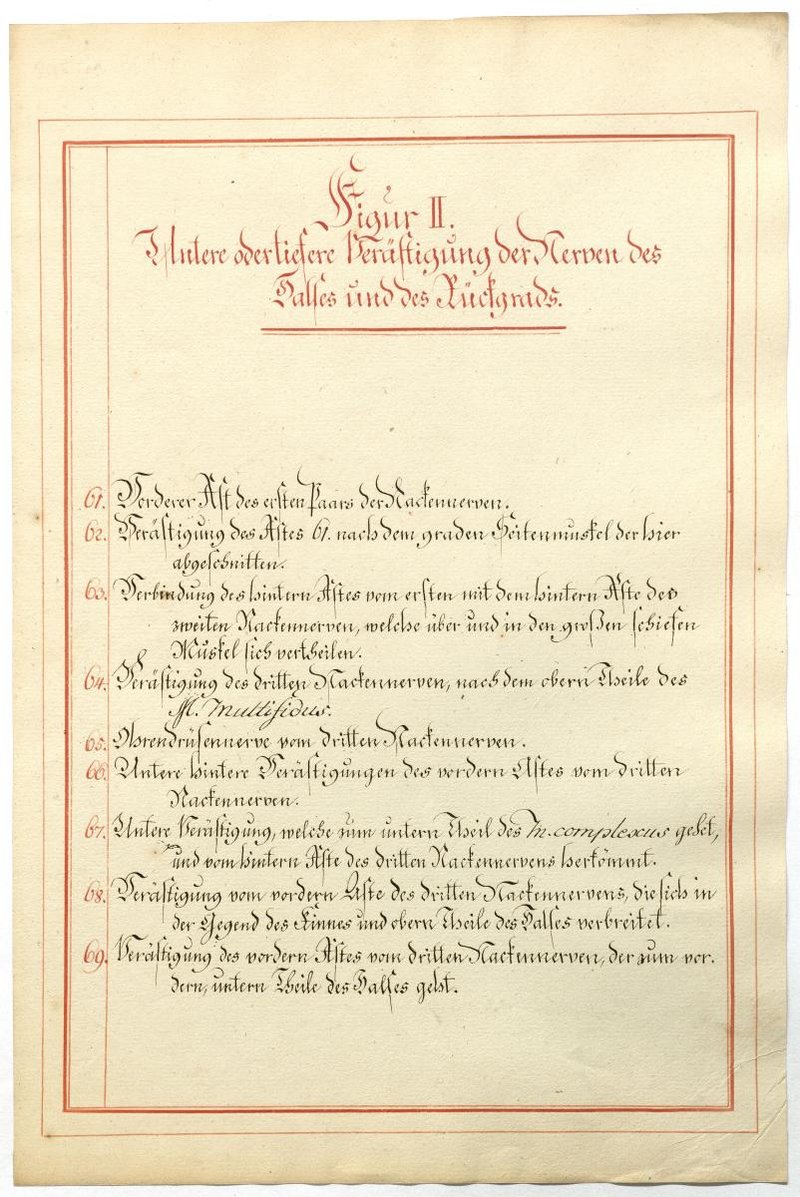 Figur II.
Untere oder tiefere Verästigung der Nerven des
Halses und des Rückgrads.
61. Vorderer Ast des ersten Paars der Nackennerven.
62. Verästigung des Astes 61. nach dem graden Seitenmuskel der hier
abgeschnitten.
63. Verbindung des hintern Astes vom ersten mit dem hintern Aste des
zweiten Nackennerven, welche über und in den großen schiefen
Muskel sich vertheilen.
64. Verästigung des dritten Nackennerven, nach dem obern Theile des
M. multifidus.
65. Ohrendrüsennerve vom dritten Nackennerven.
66. Untere hintere Verästigungen des vordern Astes vom dritten
Nackennerven.
67. Untere Verästigung, welche zum untern Theil des m. complexus gehet,
und vom hintern Aste des dritten Nackennervens herkömmt.
68. Verästigung vom vordern Aste des dritten Nackennervens, die sich in
der Gegend des Kinnes und obern Theile des Halses verbreitet.
69. Verästigung des vordern Astes vom dritten Nackennerven, der zum vor-
dern, untern Theile des Halses geht.